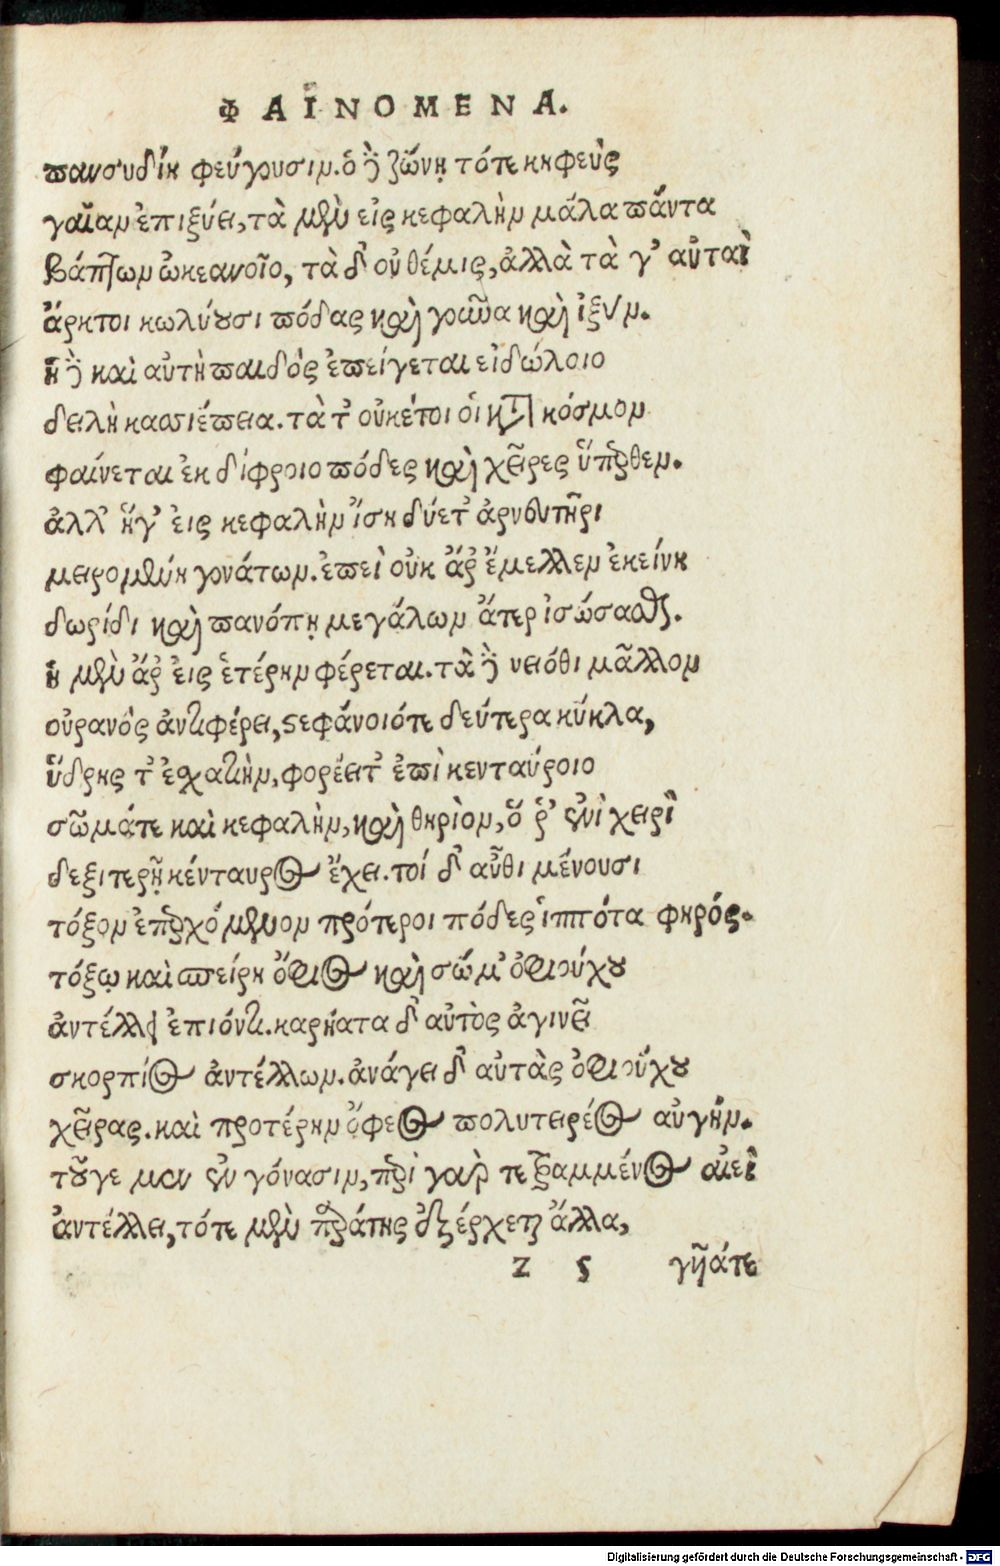 ΦΑΙΝΟΜΕΝΑ.
πανσυδίη φεύγουσιν. ὁ δὲ ζώνῃ τότε κηφεὺς
γαῖαν ἐπιξύει, τὰ μὲν εἰς κεφαλὴν μάλα πάντα
βάπτων ὠκεανοῖο, τὰ δ' οὐ θέμις, ἀλλὰ τὰ γ' αὐταὶ
ἄρκτοι κωλύουσι πόδας καὶ γοῦνα καὶ ἰξύν.
ἡ δὲ καὶ αὐτὴ παιδὸς ἐπείγεται εἰδώλοιο
δειλὴ κασσιέπεια. τὰ τ' οὐκέτοι οἱ κατὰ κόσμον
φαίνεται ἐκ δίφροιο πόδες καὶ χεῖρες ὕπερθεν.
ἀλλ' ἥγ' εἰς κεφαλὴν ἴση δύετ' ἀρνευτῆρι
μειρομένη γονάτων. ἐπεὶ οὐκ ἄρ' ἔμελλεν ἐκείνη
δωρίδι καὶ πανόπῃ μεγάλων ἄτερ ἰσώσασθαι.
ἡ μὲν ἄρ' εἰς ἑτέρην φέρεται. τὰ δὲ νειόθι μᾶλλον
οὐρανὸς ἀντιφέρει, στεφάνοιότε δεύτερα κύκλα,
ὕδρης τ' ἐσχατιὴν, φορέειτ' ἐπὶ κενταύροιο
σῶμάτε καὶ κεφαλὴν, καὶ θηρίον, ὅ ῥ' ἐνὶ χειρὶ
δεξιτερῇ κένταυρος ἔχει. τοί δ' αὖθι μένουσι
τόξον ἐπερχόμενον πρότεροι πόδες ἱππότα φηρός.
τόξῳ καὶ σπείρη ὄφιος καὶ σώμ' ὀφιούχου
ἀντέλλει ἐπιόντι. καρήατα δ' αὐτὸς ἀγινεῖ
σκορπίος ἀντέλλων. ἀνάγει δ' αὐτὰς ὀφιούχου
χεῖρας. καὶ προτέρην ὄφεος πολυτειρέος αὐγήν.
τοῦγε μεν ἐν γόνασιν, περὶ γάρ τετραμμένος αἰεὶ
ἀντέλλει, τότε μὲν περάτης ἐξέρχεται ἄλλα,
z ς γῆάτε
Digitalisierung gefördert durch die Deutsche Forschungsgemeinschaft - DFG